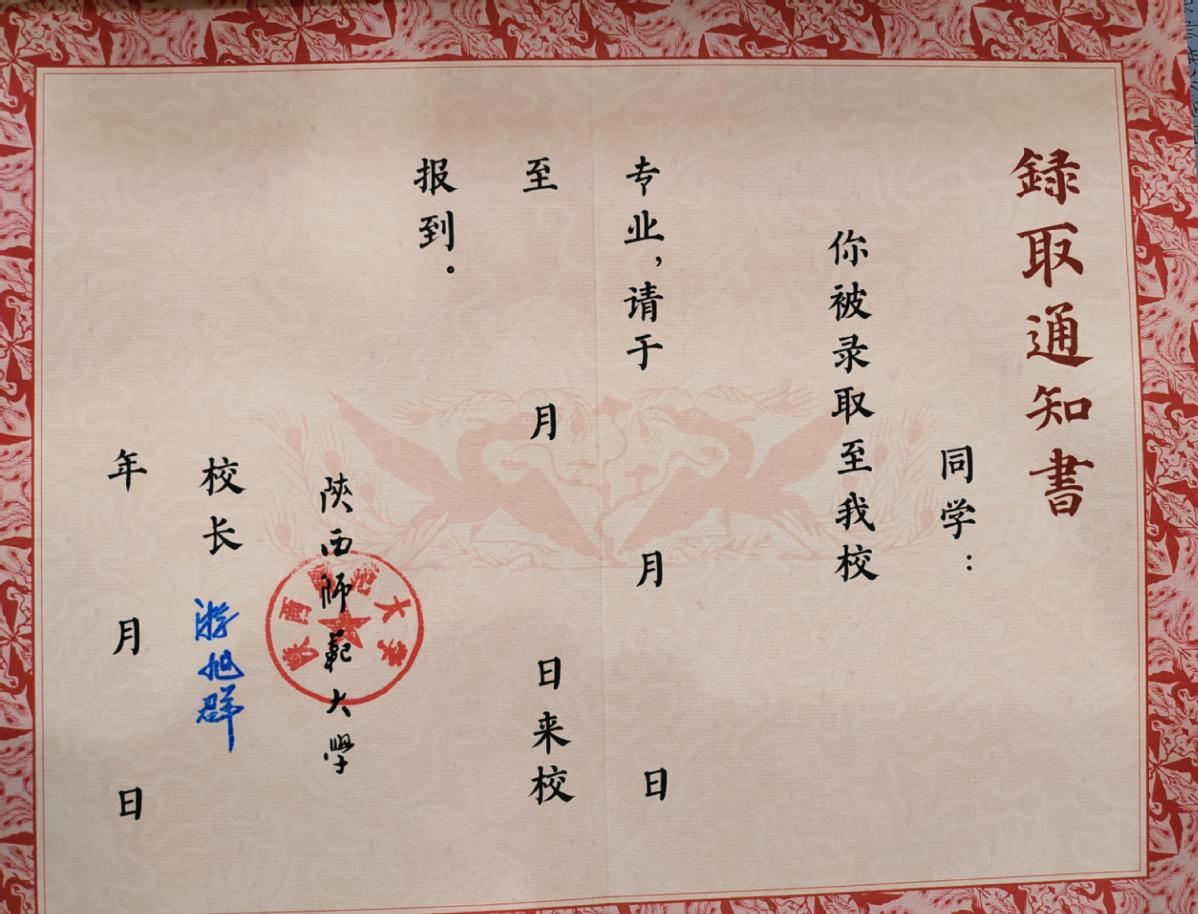 録取通知書
同学：
你被录取至我校
专业，请于 月 日
至 月 日来校
报到。
陝西師範大學
陝西師範大学
校长 游旭群
年 月 日